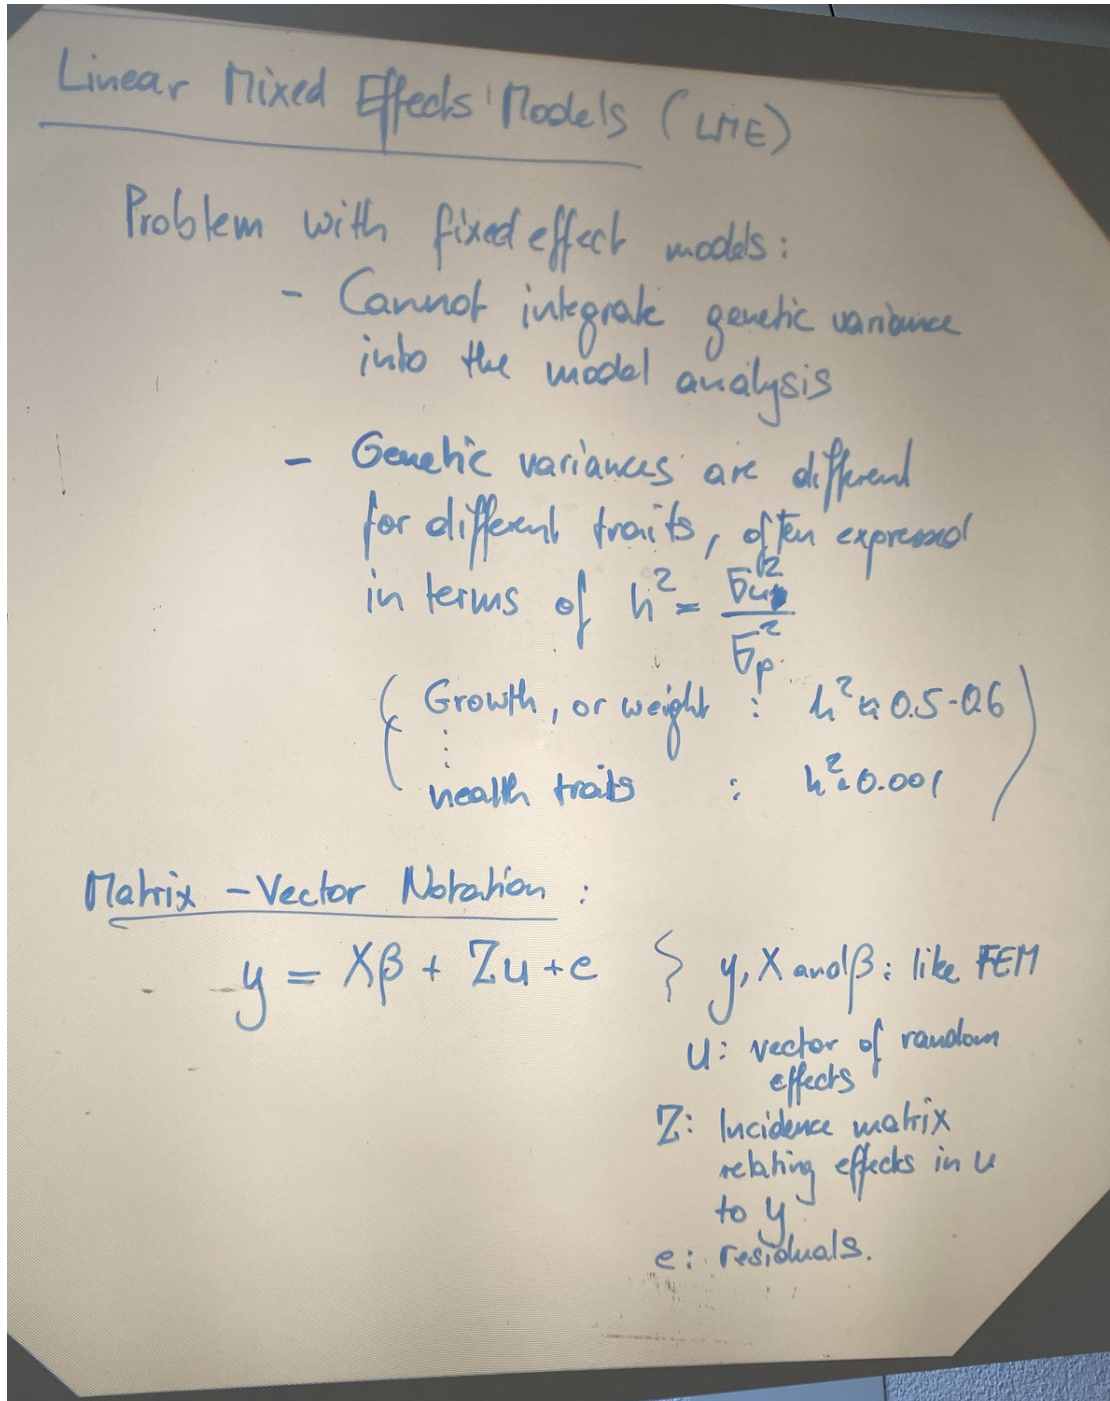 Linear Mixed Effects Models (LME)
Problem with fixed effect models:
- Cannot integrate genetic variance
into the model analysis
- Genetic variances are different
for different traits, often expressed
in terms of h² = σu² / σp²
( Growth, or weight : h² ≈ 0.5-0.6 )
⋮
health traits : h² ≈ 0.001
Matrix - Vector Notation :
y = Xβ + Zu + e } y, X and β: like FEM
u: vector of random
effects
Z: Incidence matrix
relating effects in u
to y
e: residuals.